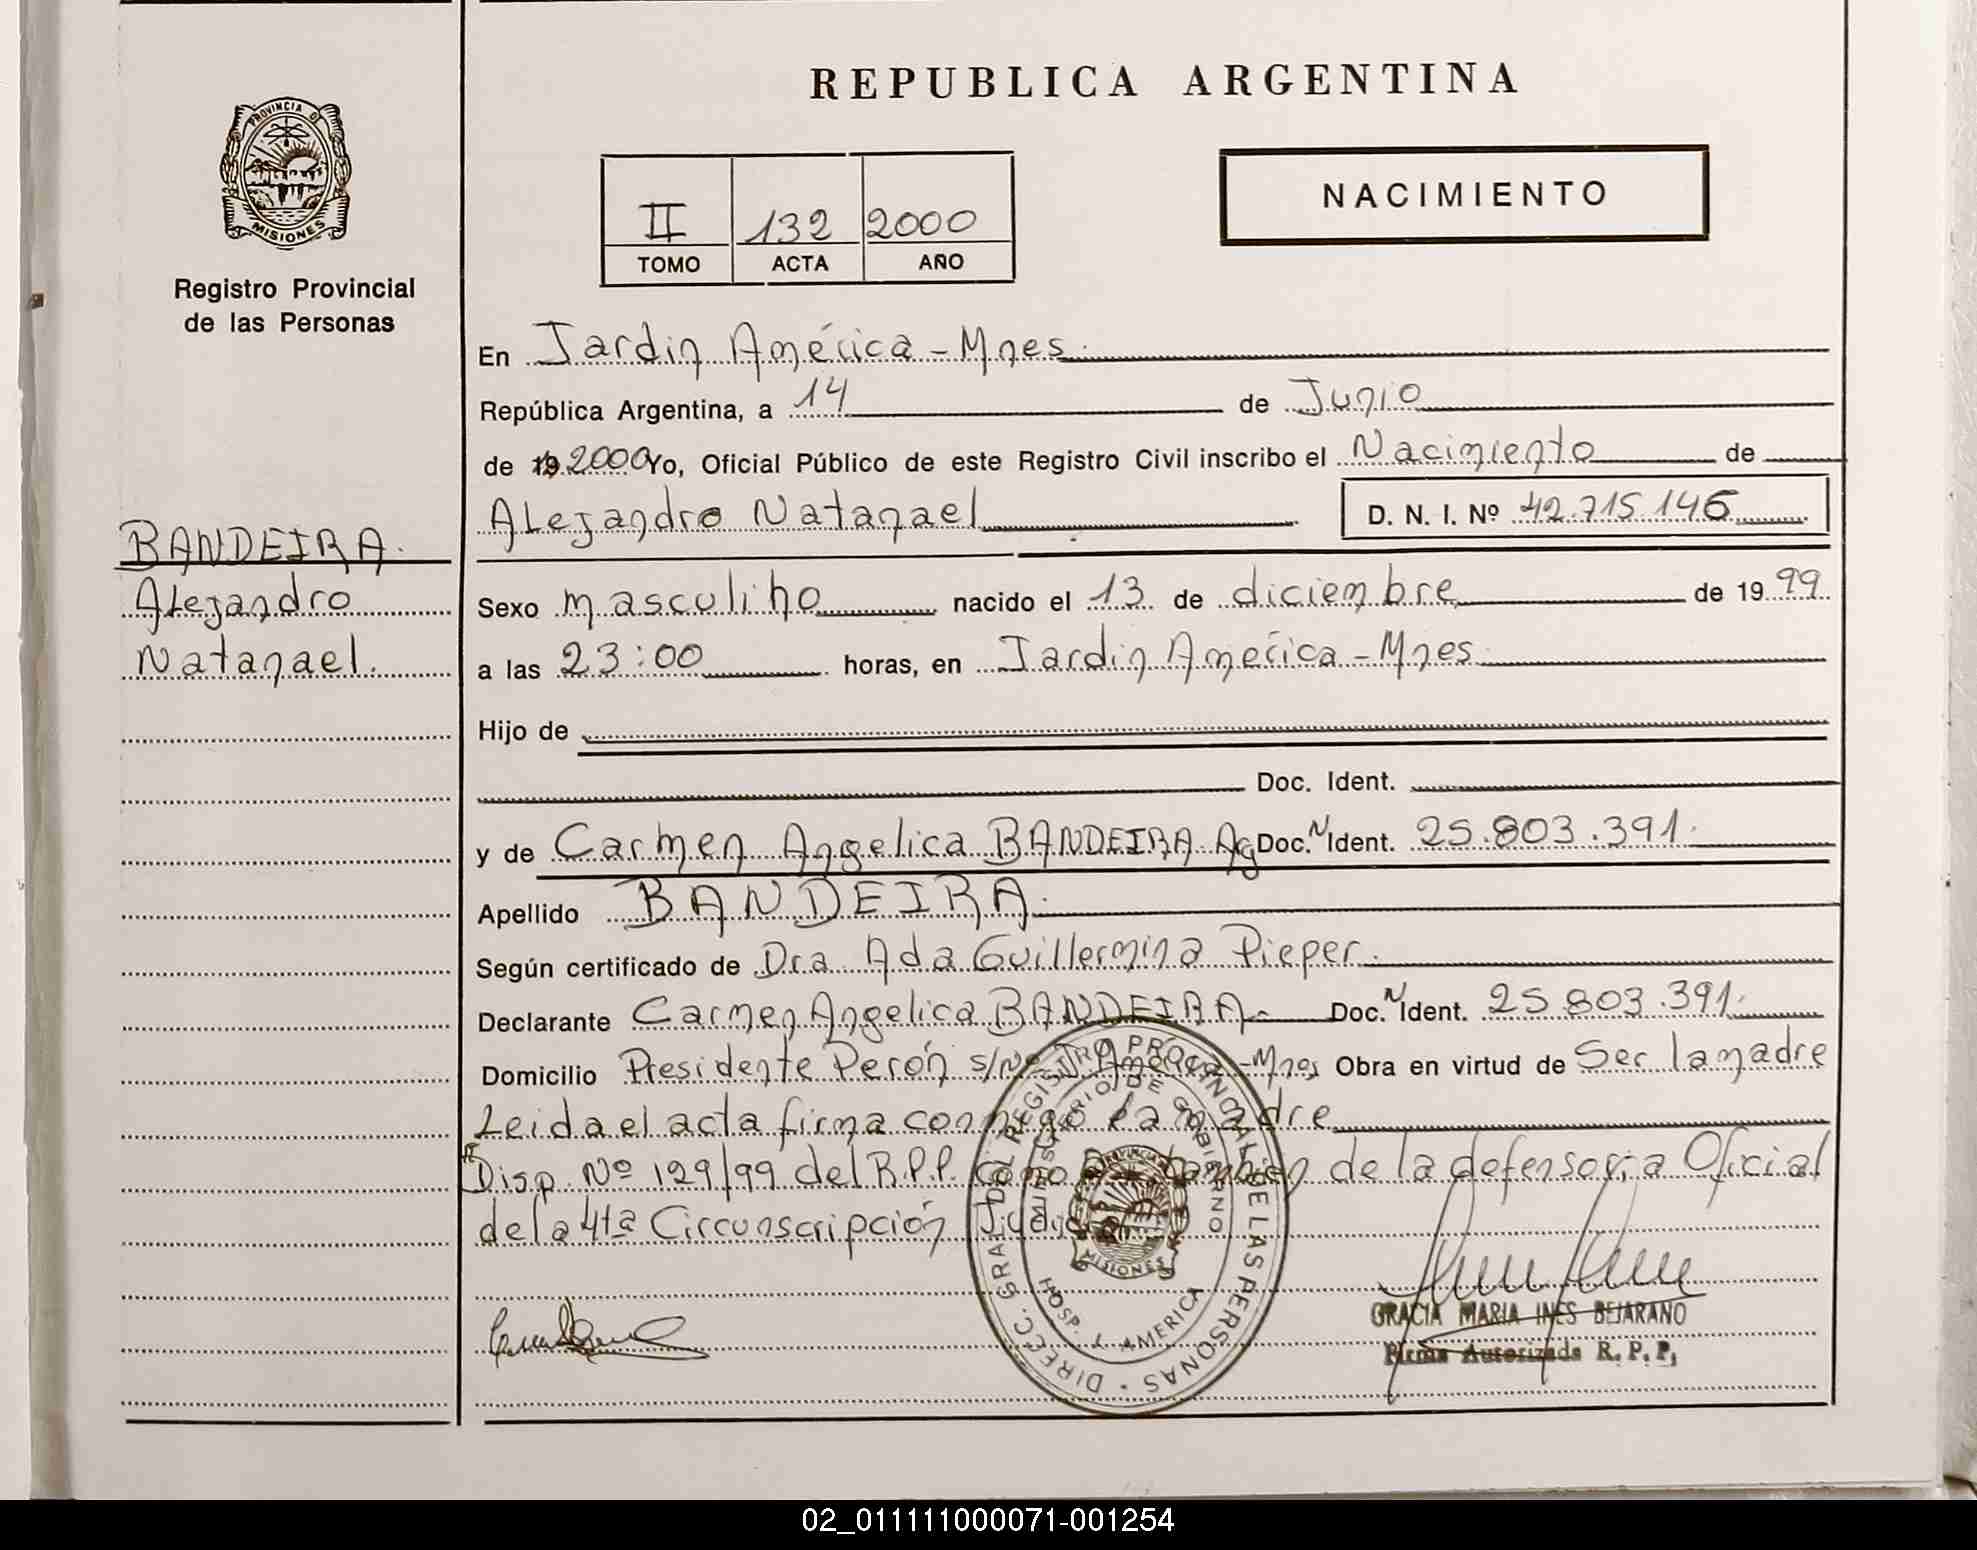 REPUBLICA ARGENTINA
PROVINCIA D
MISIONES
Registro Provincial
de las Personas
II 132 2000
TOMO ACTA AÑO
NACIMIENTO
En Jardin América - Mnes.
República Argentina, a 14 de Junio
de 19 2000 Yo, Oficial Público de este Registro Civil inscribo el Nacimiento de
Alejandro Natanael D. N. I. Nº 42.715.146
BANDEIRA.
Alejandro
Natanael.
Sexo masculino nacido el 13 de diciembre de 19 99
a las 23:00 horas, en Jardin América - Mnes.
Hijo de
Doc. Ident.
y de Carmen Angelica BANDEIRA Ag Doc. N Ident. 25.803.391.
Apellido BANDEIRA.
Según certificado de Dra Ada Guillermina Pieper.
Declarante Carmen Angelica BANDEIRA.- Doc. N Ident. 25.803.391.
Domicilio Presidente Perón s/Nº J. América - Mnes Obra en virtud de Ser la madre
Leida el acta firma conmigo la madre
Disp. Nº 129/99 del R.P.P. como asi tambien de la defensoria Oficial
de la 4ta Circunscripción Judicial
DIRECC. GRAL. DEL REGISTRO PROVINCIAL DE LAS PERSONAS
MINISTERIO DE GOBIERNO
PROVINCIA
MISIONES
HOSP. J. AMERICA
GRACIA MARIA INES BEJARANO
Firma Autorizada R. P. P.
02_011111000071-001254